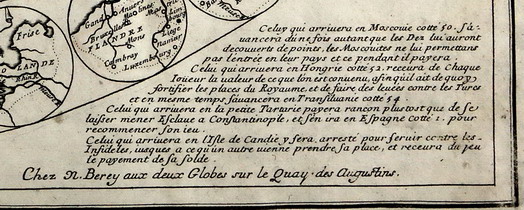 Frise
Gand
Anuers
Bruxelles
Mons
FLANDRE
Cambray
Luxembourg
Liege
Rhin
Celuy qui arriuera en Moscouie cotté 50. s'a-
uancera du ne fois autant que les Dez luy auront
decouuerts de points, les Moscouites ne luy permettans
pas l'entrée en leur pays et ce pendant il payera.
Celui qui arriuera en Hongrie cotté 52. receura de Chaque
Ioüeur la ualeur de ce que l'on est conuenu, afin qu'il ait de quoy
fortifier les places du Royaume, et de faire des leueés contre les Turcs
et en mesme temps s'auancera en Transiluanie cotté 54.
Celui qui arriuera en la petite Tartarie payera rançon plustost que de se
laisser mener Esclaue a Constantinople, et s'en ira en Espagne cotté 1. pour
recommencer son ieu.
Celui qui arriuera en l'Isle de Candie y sera arresté pour seruir contre les
Infideles, iusques a ce qu'un autre uienne prendre sa place, et receura du jeu
le payement de sa solde.
Chez N. Berey aux deux Globes sur le Quay des Augustins.